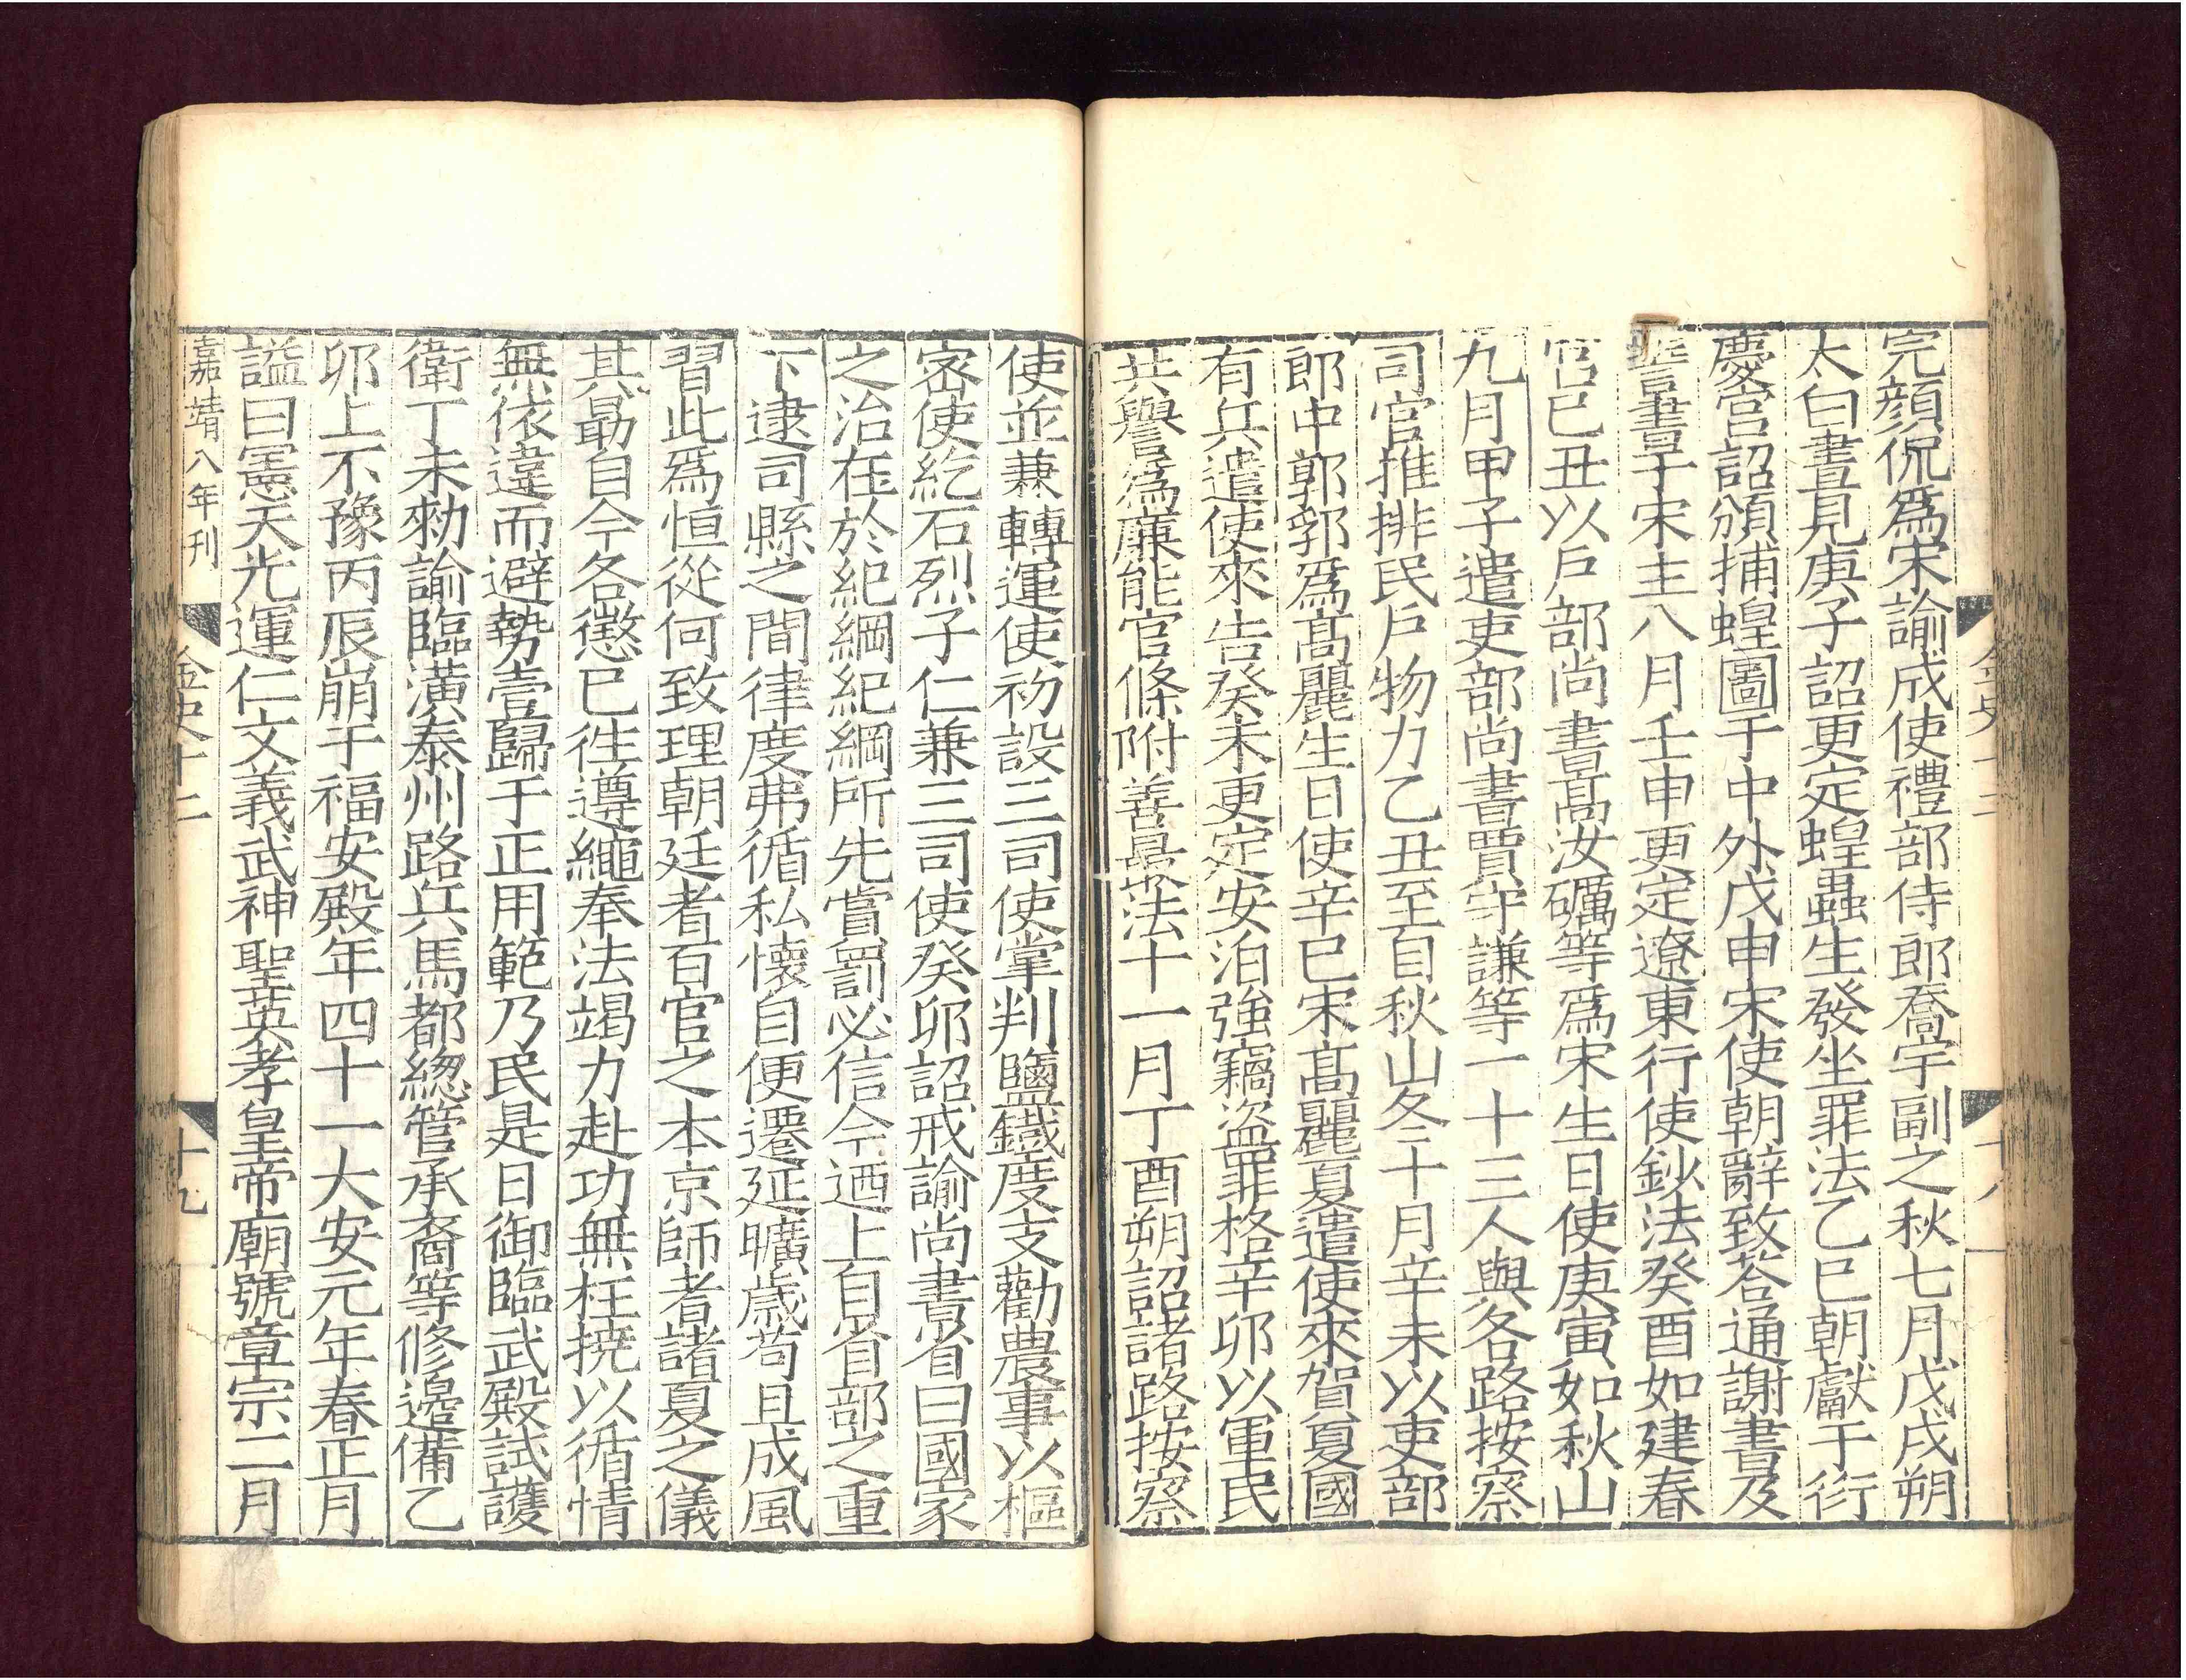 完顏侃爲宋諭成使禮部侍郎喬宇副之秋七月戊戌朔
太白晝見庚子詔更定蝗蟲生發坐罪法乙巳朝獻于衍
慶宮詔頒捕蝗圖于中外戊申宋使朝辭致荅通謝書及
誓書于宋主八月壬申更定遼東行使鈔法癸酉如建春
宮己丑以戶部尚書髙汝礪等爲宋生日使庚寅如秋山
九月甲子遣吏部尚書賈守謙等一十三人與各路按察
司官推排民戶物力乙丑至自秋山冬十月辛未以吏部
郎中郭郛爲髙麗生日使辛巳宋髙麗夏遣使來賀夏國
有兵遣使來告癸未更定安泊強竊盜罪格辛卯以軍民
共譽爲廉能官條附善最法十一月丁酉朔詔諸路按察
金史十二
十八
使並兼轉運使初設三司使掌判鹽鐵度支勸農事以樞
密使紇石烈子仁兼三司使癸卯詔戒諭尚書省曰國家
之治在於紀綱紀綱所先賞罰必信今迺上自省部之重
下逮司縣之間律度弗循私懷自便遷延曠歲苟且成風
習此爲恒從何致理朝廷者百官之本京師者諸夏之儀
其勗自今各懲已徃遵繩奉法竭力赴功無枉撓以循情
無依違而避勢壹歸于正用範乃民是日御臨武殿試護
衛丁未勑諭臨潢泰州路兵馬都緫管承裔等修邉備乙
卯上不豫丙辰崩于福安殿年四十一大安元年春正月
謚曰憲天光運仁文義武神聖英孝皇帝廟號章宗二月
嘉靖八年刊
金史十二
十九